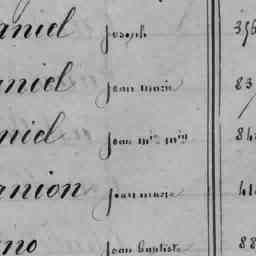 aniel joseph 356
aniel jean marie 83
niel jean mie
anion jean marie
no jean baptiste 88